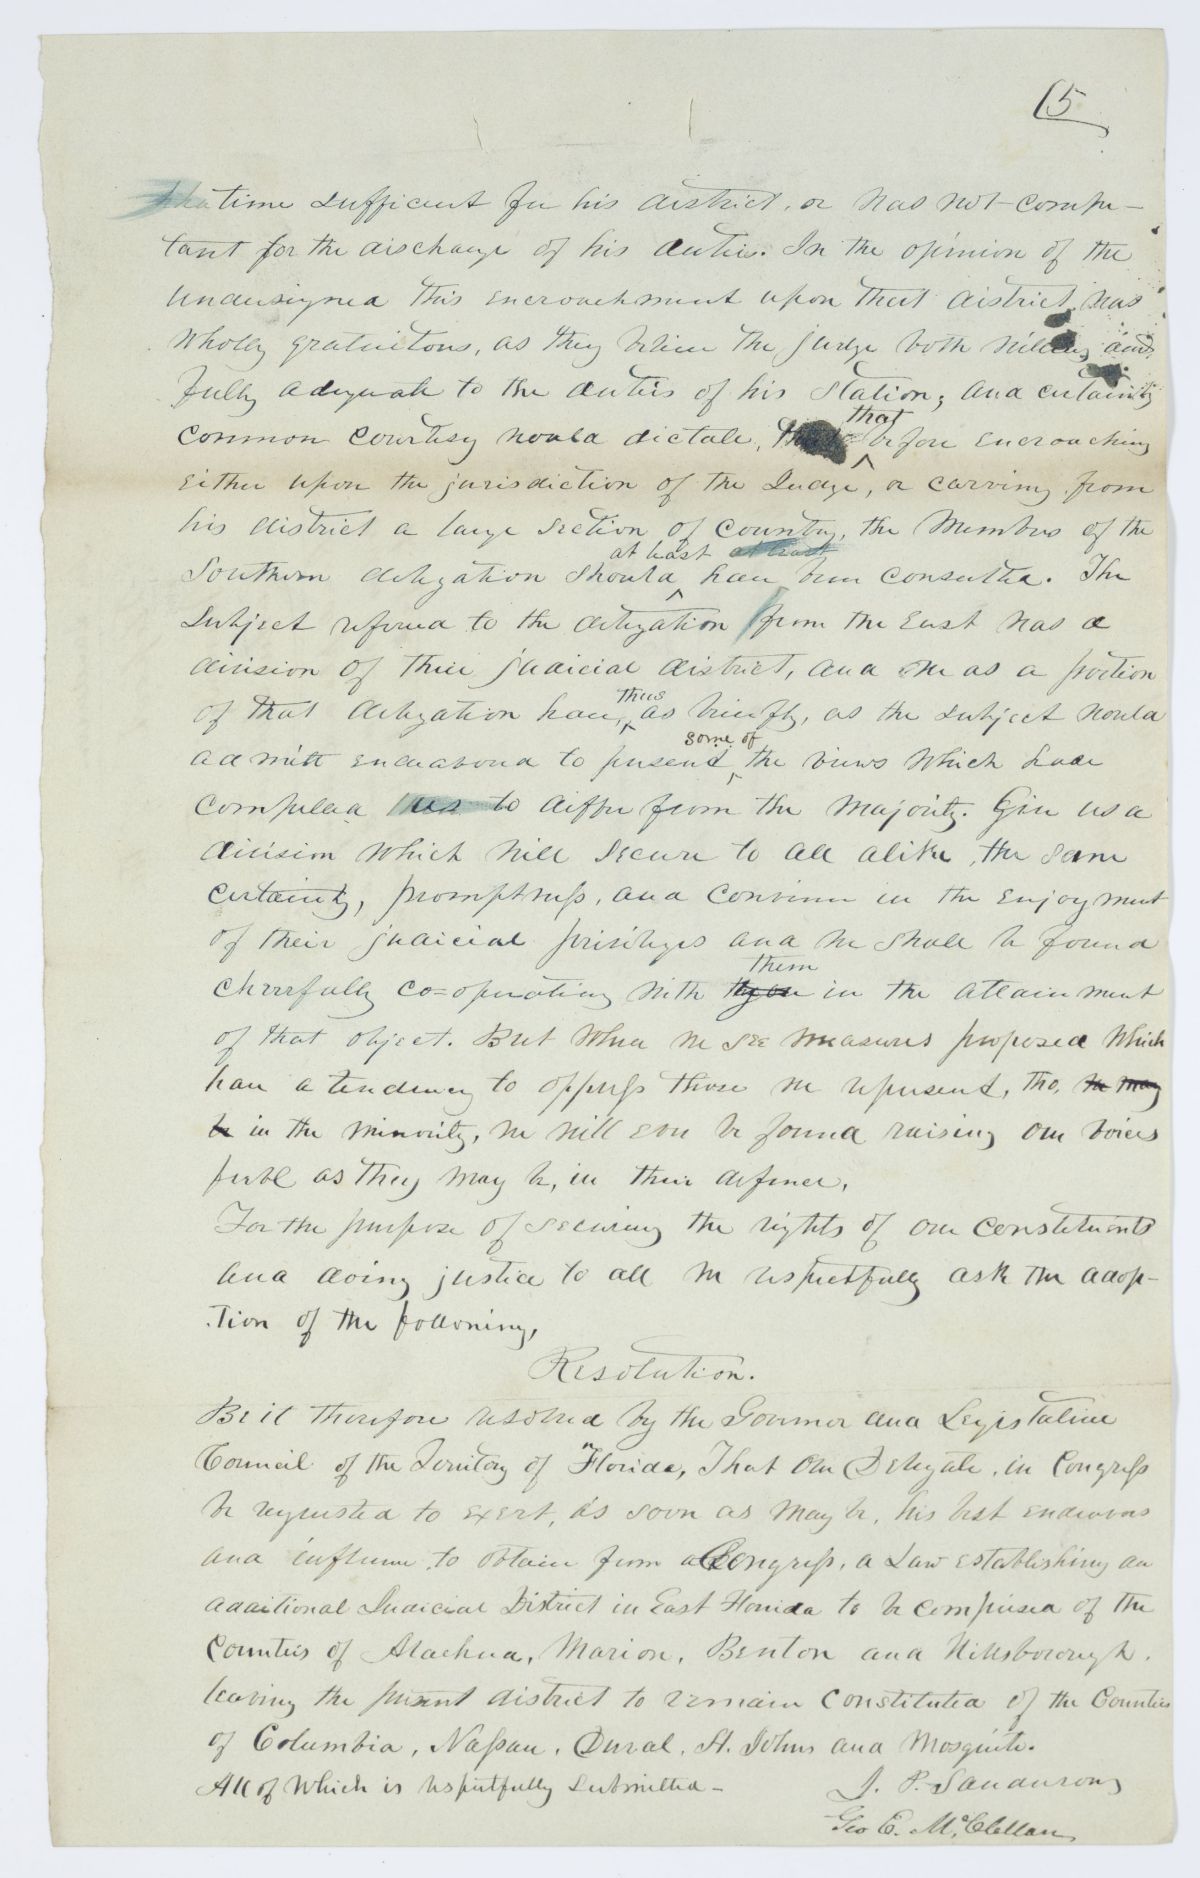 (5
time sufficient for his district, or was not compe-
tant for the discharge of his duties. In the opinion of the
undersigned this encroachment upon that district, was
wholly gratuitous, as they believe the judge both willing and
fully adequate to the duties of his station; and certainly
common courtesy would dictate, that before encroaching
either upon the jurisdiction of the Judge, or carving from
his district a large section of country, the Members of the
Southern delegation should at least have been consulted. The
subject refered to the delegation from the East was a
division of their judicial district, and we as a portion
of that delegation have, thus as briefly, as the subject would
admitt endeavored to present some of the views which have
compelled us to differ from the majority. Give us a
division which will secure to all alike, the same
certainty, promptness, and convenience in the enjoyment
of their judicial privileges and we shall be found
cheerfully co=operating with them in the attainment
of that object. But when we see measures proposed which
have a tendency to oppress those we represent, tho, we may
be in the minority, we will ever be found raising our voices
feeble as they may be, in their defence.
For the purpose of securing the rights of our constituents
and doing justice to all we respectfully ask the adop-
tion of the following,
Resolution.
Be it therefore resolved by the Governor and Legislative
Council of the Territory of Florida, That our Delegate, in Congress
be requested to exert, as soon as may be, his best endeavors
and influence to obtain from Congress, a Law establishing an
additional Judicial District in East Florida to be comprised of the
Counties of Alachua, Marion, Benton and Hillsborough,
leaving the present district to remain constituted of the Counties
of Columbia, Nassau, Duval, St. Johns and Mosquito.
All of which is respectfully submitted -
J. P. Sanderson
Geo E. McClellan